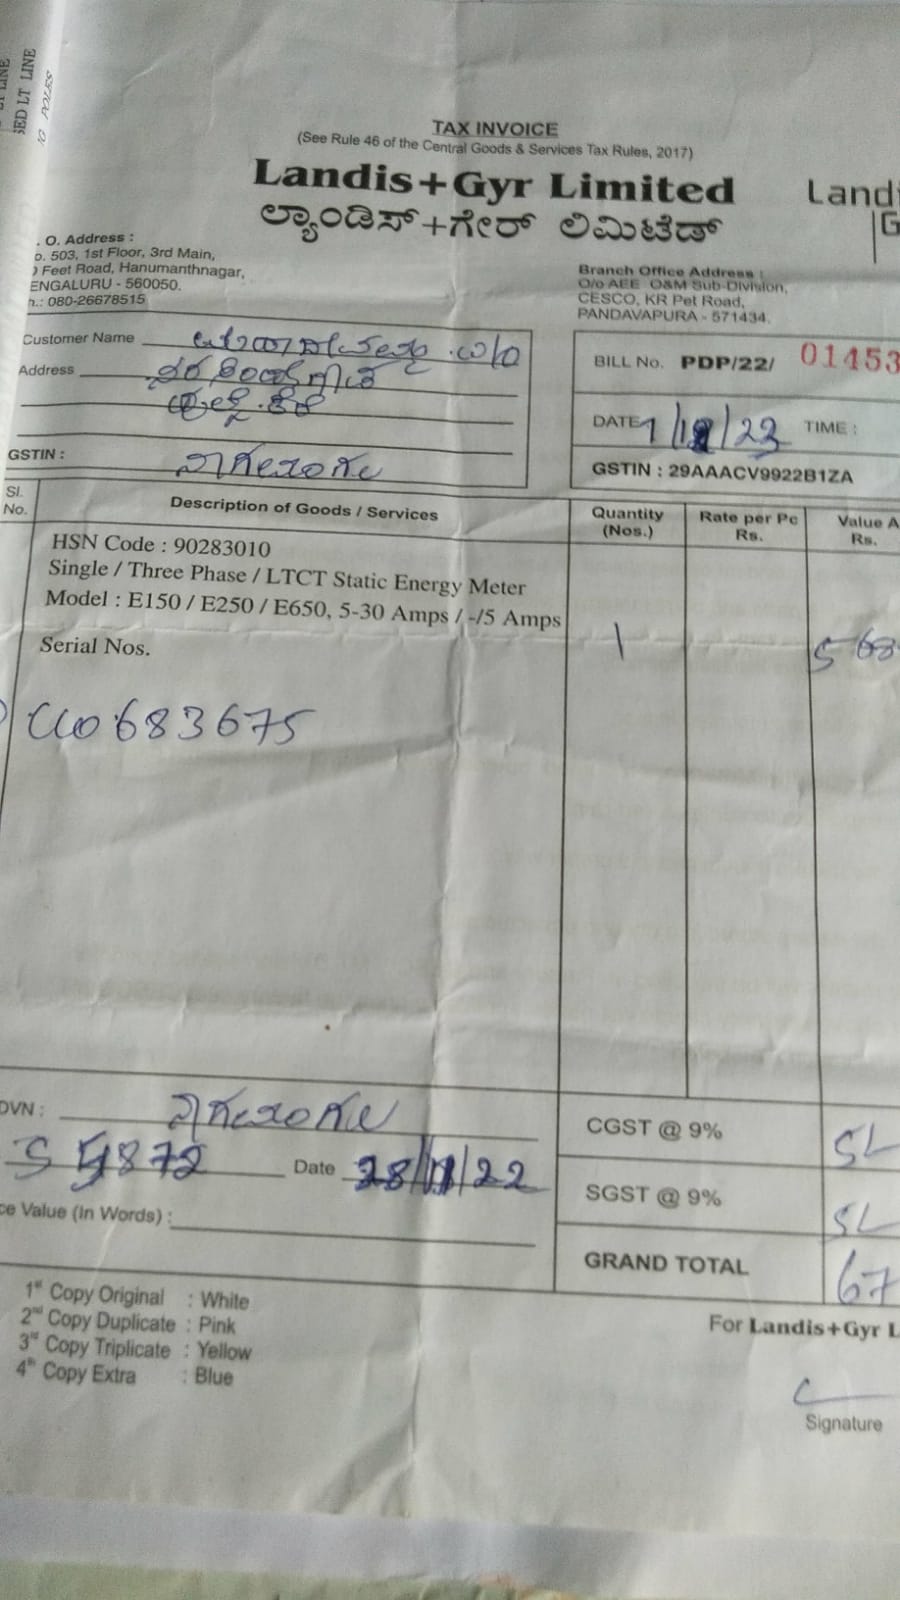 SED LT LINE
TAX INVOICE
(See Rule 46 of the Central Goods & Services Tax Rules, 2017)
Landis+Gyr Limited
ಲ್ಯಾಂಡಿಸ್+ಗೇರ್ ಲಿಮಿಟೆಡ್
Landi
G
. O. Address :
o. 503, 1st Floor, 3rd Main,
0 Feet Road, Hanumanthnagar,
ENGALURU - 560050.
h.: 080-26678515
Branch Office Address :
O/o AEE O&M Sub-Division,
CESCO, KR Pet Road,
PANDAVAPURA - 571434.
Customer Name
Address
GSTIN :
BILL No. PDP/22/ 01453
DATE TIME :
GSTIN : 29AAACV9922B1ZA
Sl. No. Description of Goods / Services Quantity (Nos.) Rate per Pc Rs. Value A Rs.
HSN Code : 90283010
Single / Three Phase / LTCT Static Energy Meter
Model : E150 / E250 / E650, 5-30 Amps / -/5 Amps
Serial Nos. 1 568
683675
DVN :
CGST @ 9% 5L
Date 28/11/22
SGST @ 9% 5L
ce Value (In Words) :
GRAND TOTAL 67
1st Copy Original : White
2nd Copy Duplicate : Pink
3rd Copy Triplicate : Yellow
4th Copy Extra : Blue
For Landis+Gyr L
Signature